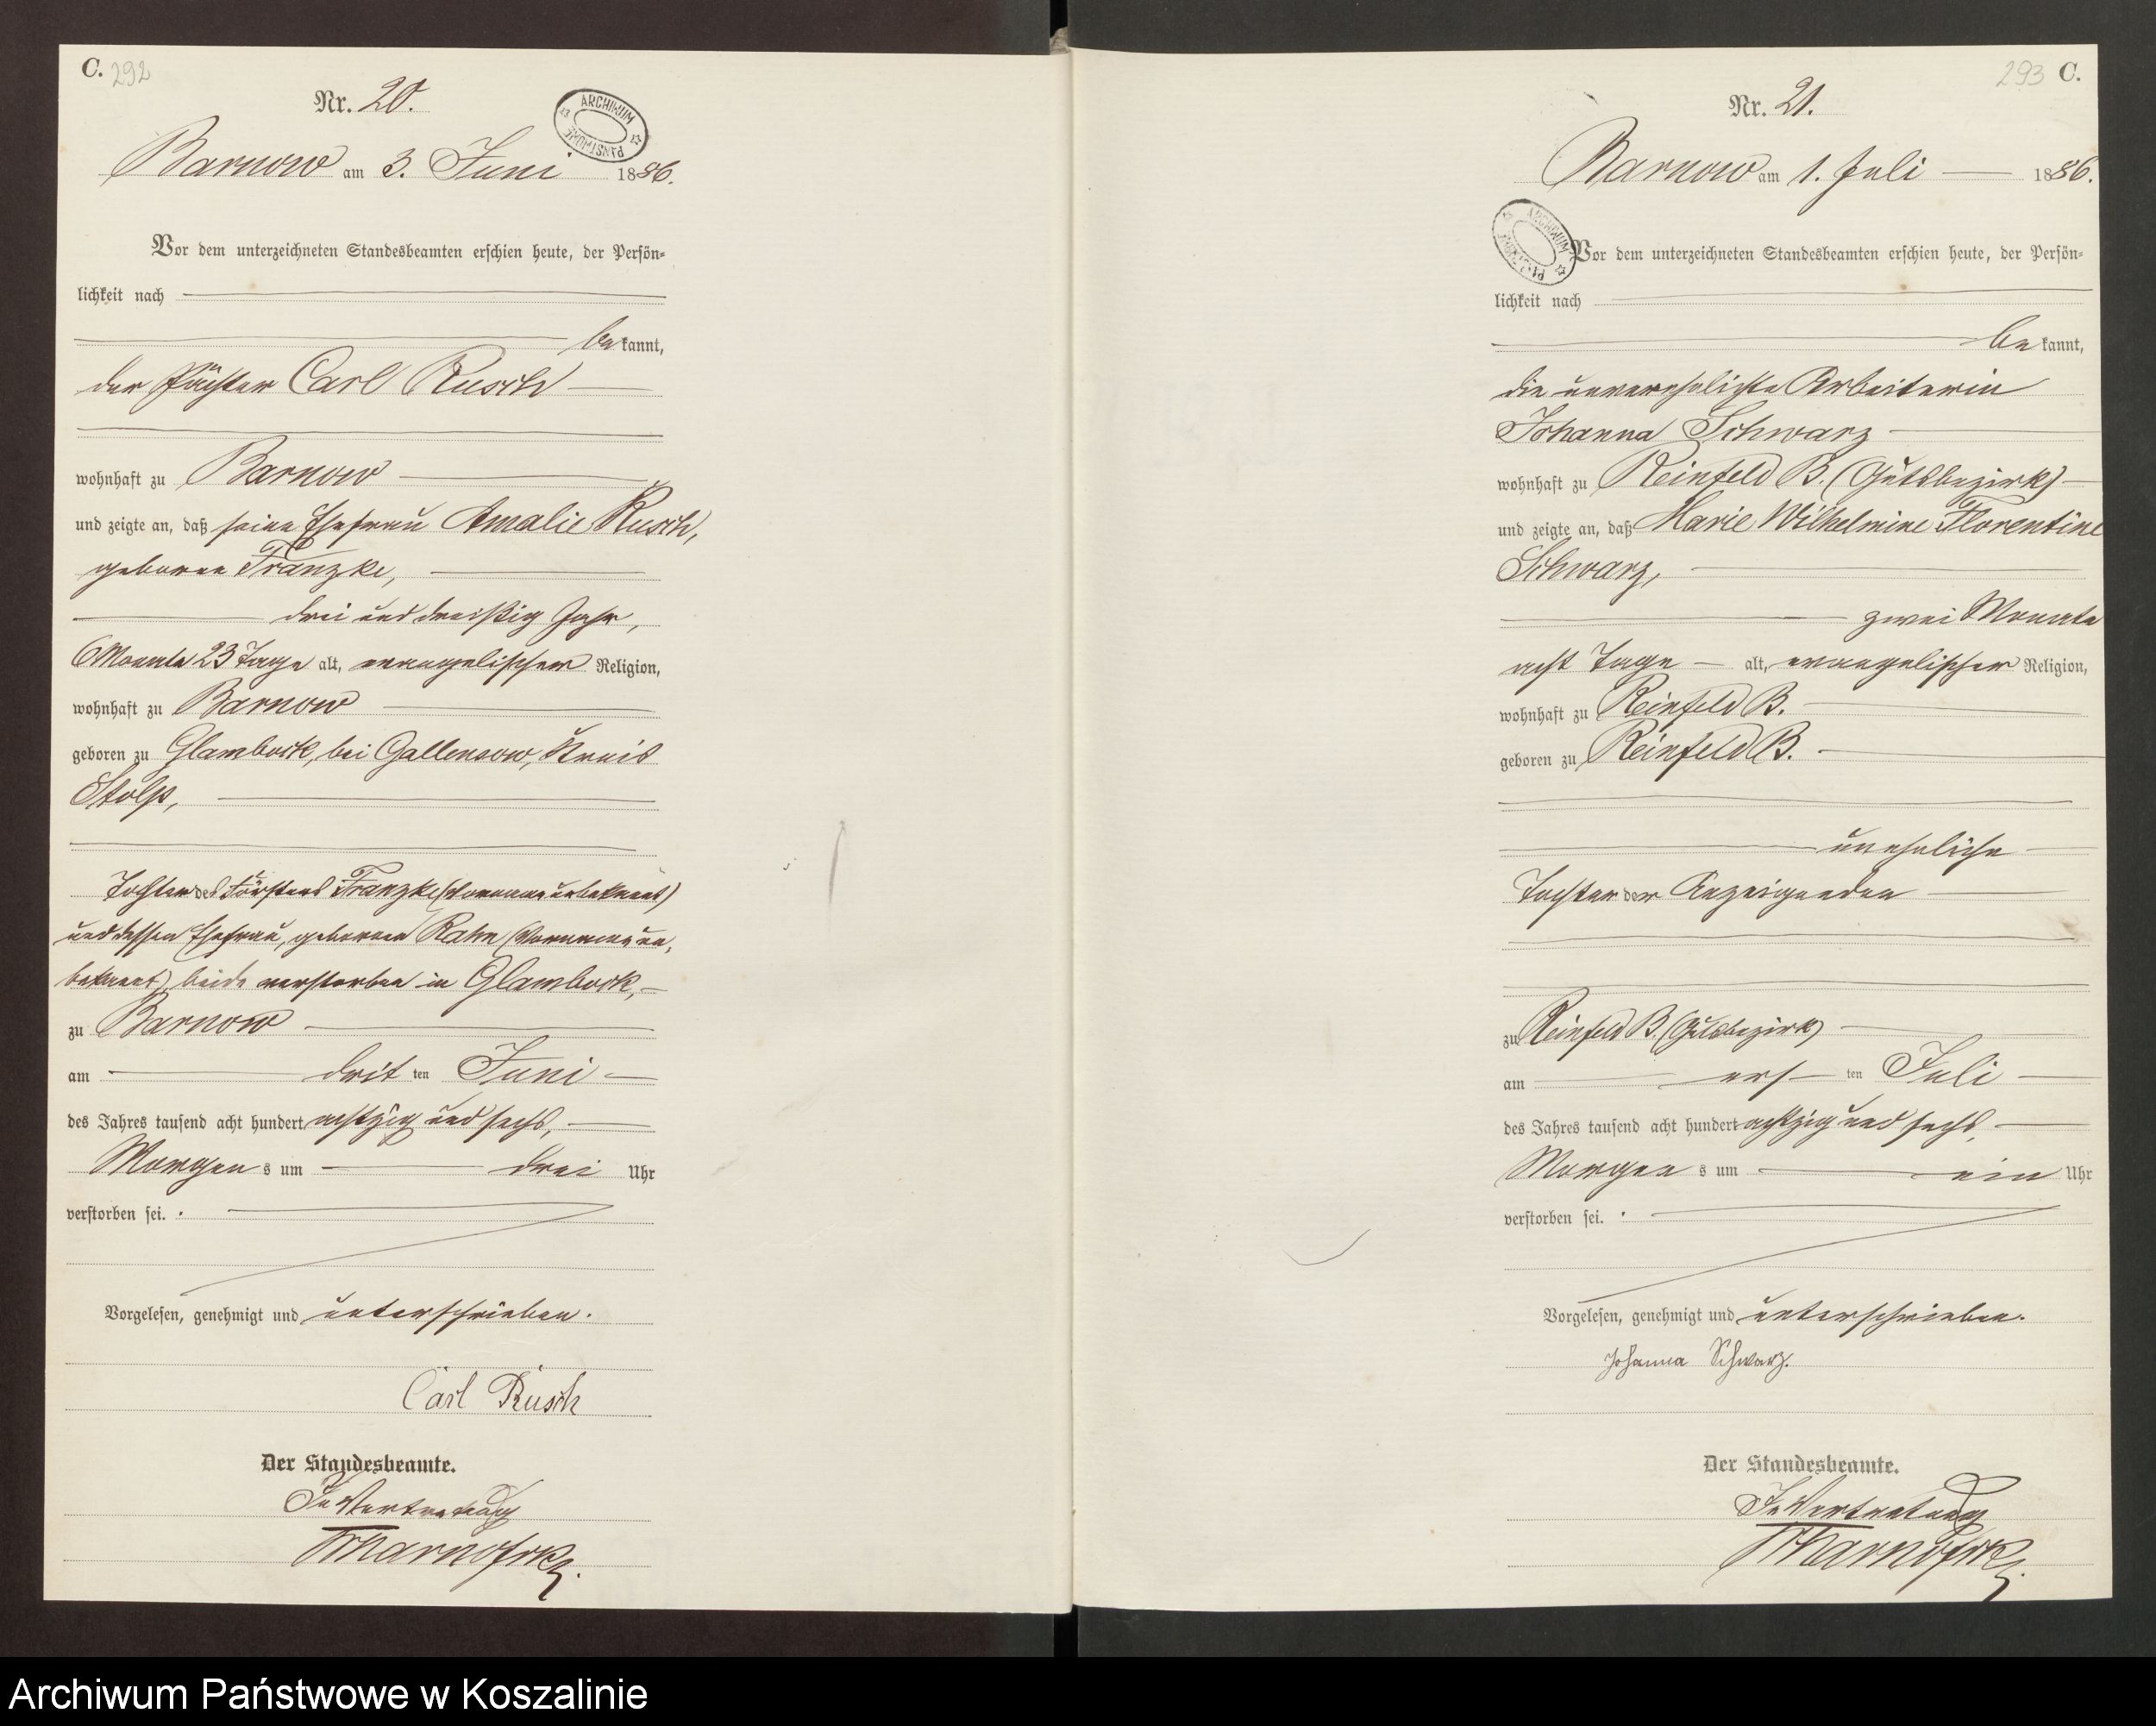 C. 292
Nr. 20.
ARCHIWUM PAŃSTWOWE
Barnow am 3. Juni 1886.
Vor dem unterzeichneten Standesbeamten erschien heute, der Persön-
lichkeit nach
bekannt,
der Pächter Carl Rusch
wohnhaft zu Barnow
und zeigte an, daß seine Ehefrau Amalie Rusch,
geborene Franzke,
drei und dreißig Jahr,
6 Monate 23 Tage alt, evangelischer Religion,
wohnhaft zu Barnow
geboren zu Glambock, bei Gallensow, Kreis
Stolp,
Tochter des Försters Franzke (Vorname unbekannt)
und dessen Ehefrau, geborenen Rahn (Vorname un-
bekannt) beide verstorben in Glambock,
zu Barnow
am dritten Juni
des Jahres tausend acht hundert achtzig und sechs,
Morgens um drei Uhr
verstorben sei.
Vorgelesen, genehmigt und unterschrieben.
Carl Rusch
Der Standesbeamte.
In Vertretung
293 C.
Nr. 21.
Barnow am 1. Juli 1886.
ARCHIWUM PAŃSTWOWE
Vor dem unterzeichneten Standesbeamten erschien heute, der Persön-
lichkeit nach
bekannt,
die unverehelichte Arbeiterin
Johanna Schwarz
wohnhaft zu Reinfeld B. (Gutsbezirk)
und zeigte an, daß Marie Wilhelmine Florentine
Schwarz,
zwei Monate
acht Tage alt, evangelischer Religion,
wohnhaft zu Reinfeld B.
geboren zu Reinfeld B.
uneheliche
Tochter der Anzeigenden
zu Reinfeld B. (Gutsbezirk)
am ersten Juli
des Jahres tausend acht hundert achtzig und sechs,
Morgens um ein Uhr
verstorben sei.
Vorgelesen, genehmigt und unterschrieben.
Johanna Schwarz.
Der Standesbeamte.
In Vertretung
Archiwum Państwowe w Koszalinie